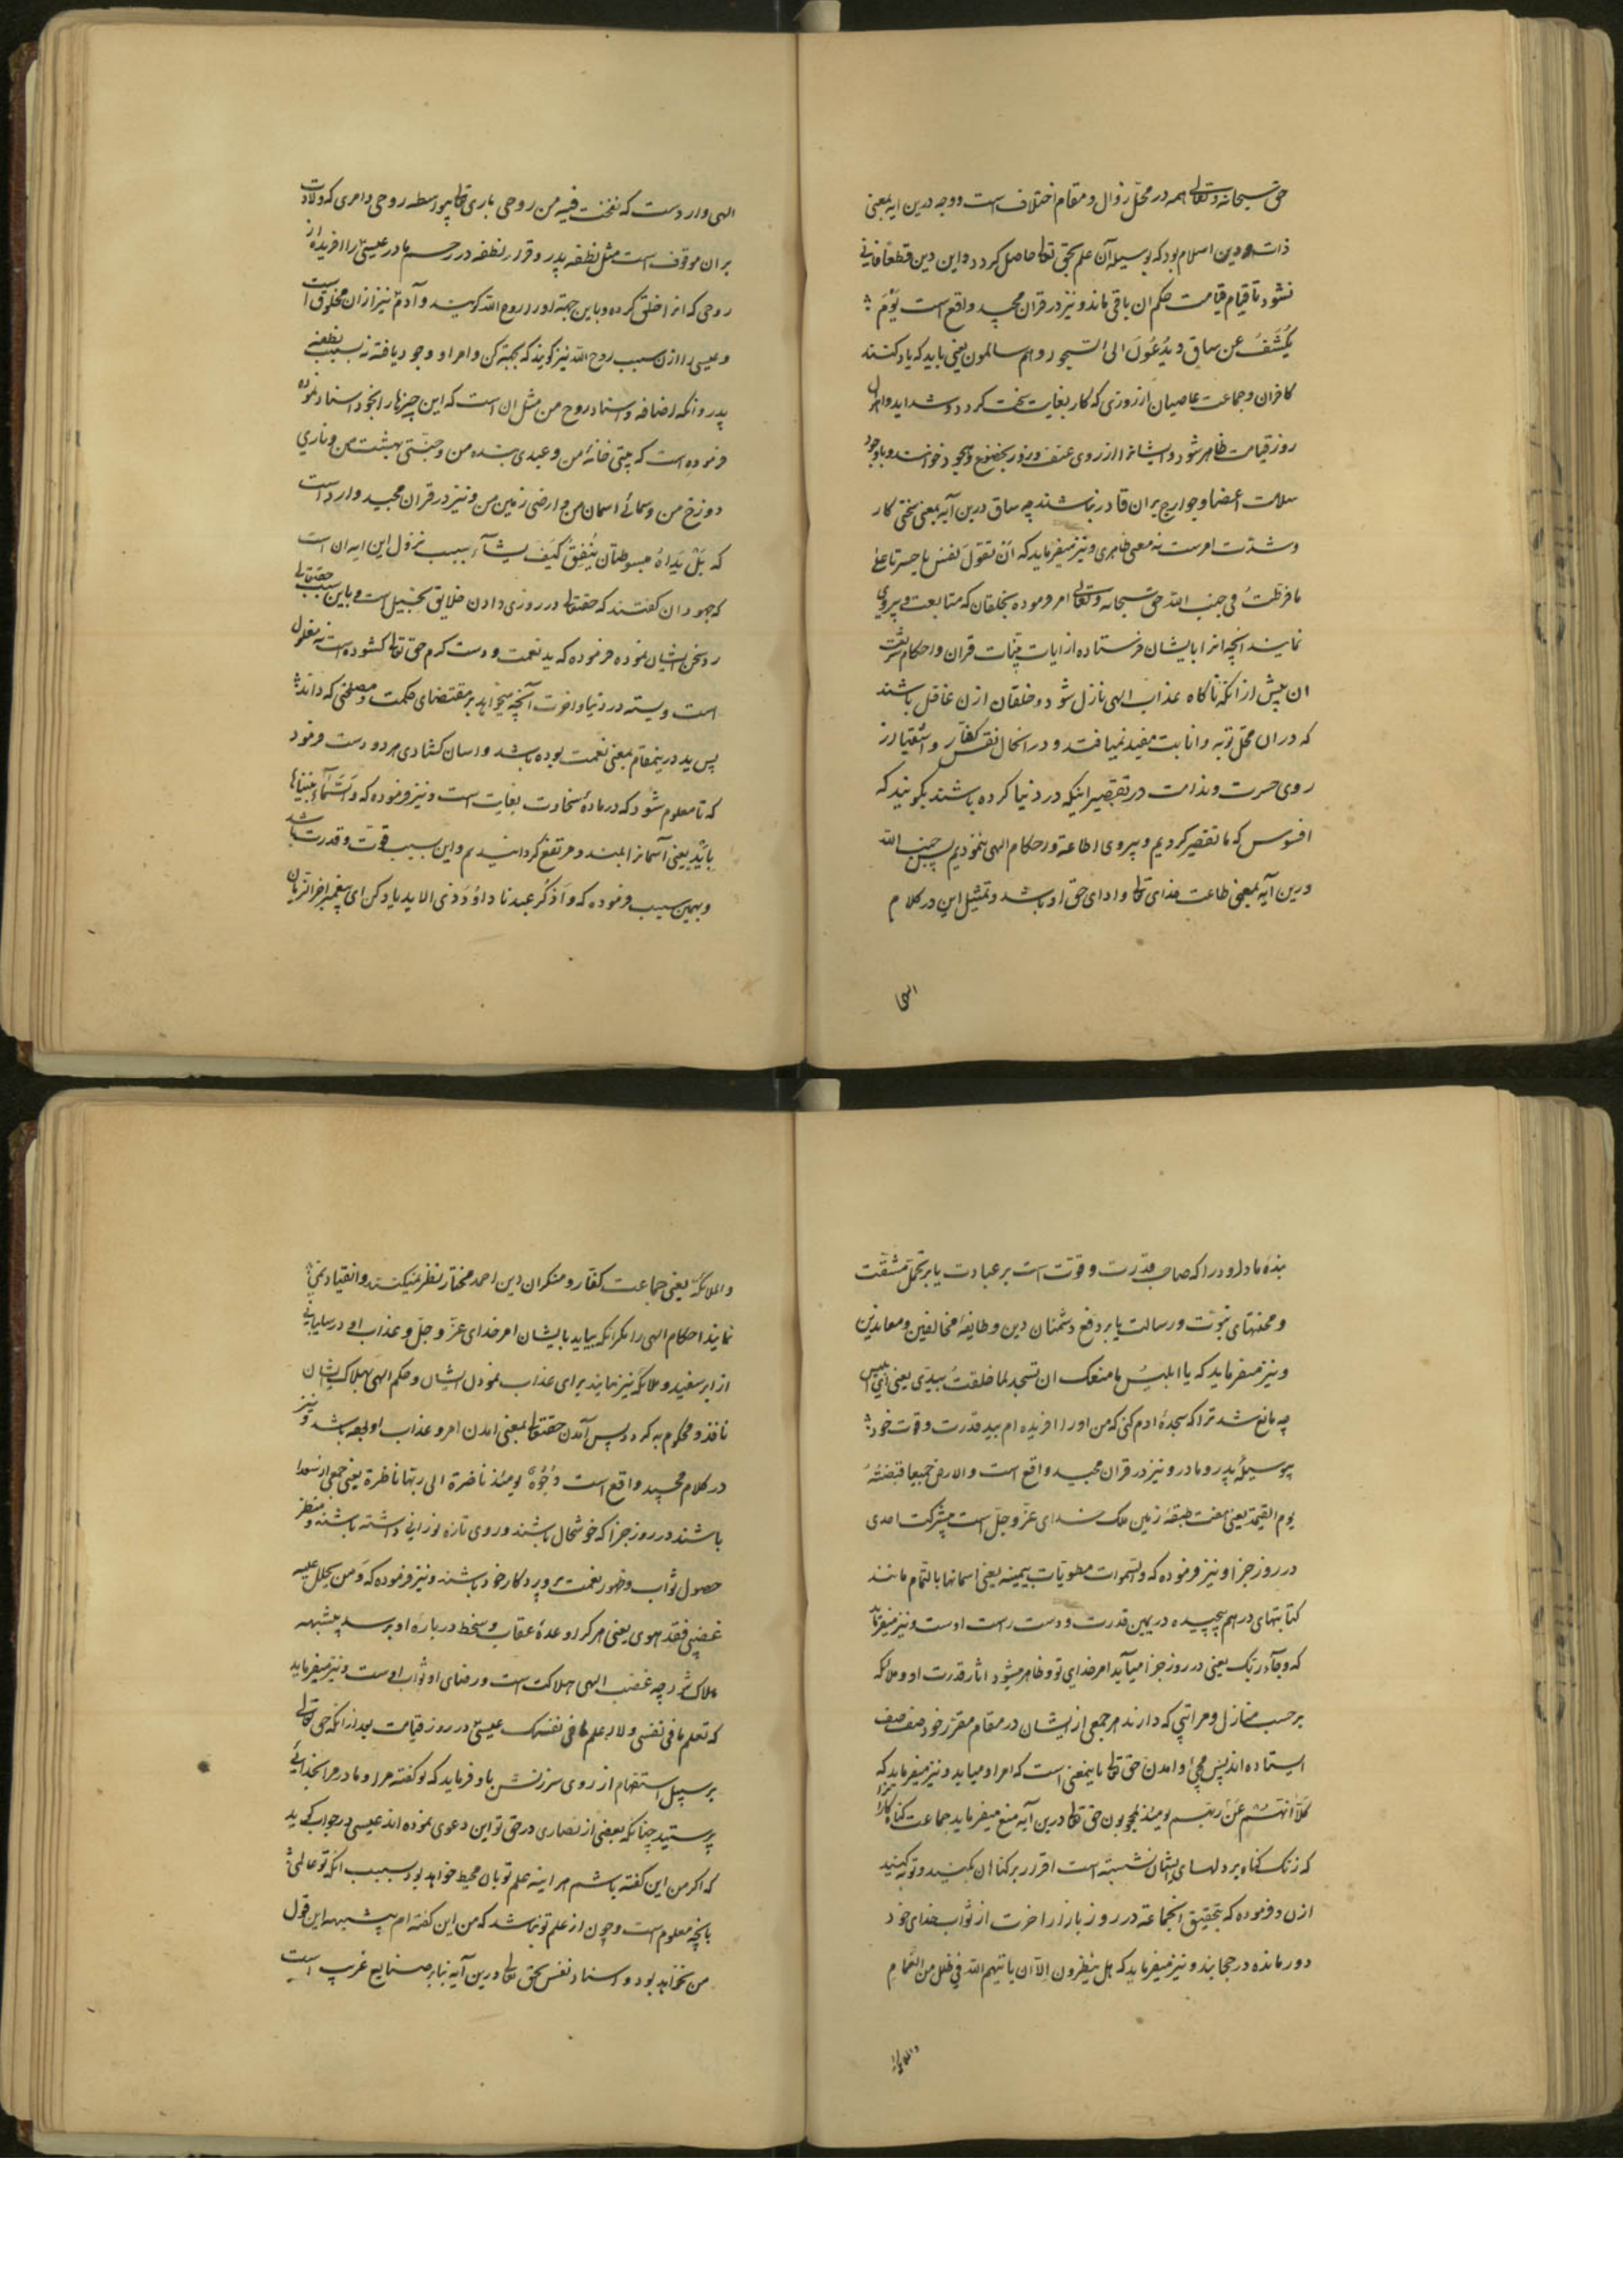 حق سبحانه وتعالی همه در محل زوال و مقام اختلاف است و وجه درین ایه بمعنی
ذات و دین اسلام بود که بوسیله آن علم بحق تعا حاصل کردد و این دین قطعا فانی
نشود تا قیام قیامت حکم ان باقی ماند و نیز در قران مجید واقع است یَوْمَ
یُکْشَفُ عن ساق و یُدْعَوْنَ الیٰ السّجود و هم سالمون یعنی باید که یاد کنند
کافران و جماعت عاصیان از روزی که کار بغایت سخت کردد و شداید و اهوال
روز قیامت ظاهر شود و ایشانرا از روی عنف و زور بخضوع و سجود خوانند و باوجود
سلامت اعضا و جوارح بران قادر نباشند چه ساق درین آیه بمعنی سختی کار
و شدّت امرست نه معنی ظاهری و نیز میفرماید که اَنْ تقولَ نفسٌ یا حسرتا علیٰ
ما فرّطتُ فی جنب الله حق سبحانه وتعالی امر فرموده بخلقان که متابعت و پیروی
نمایند انچه انرا بایشان فرستاده از ایات بیّنات قران و احکام شریعت
ان پیش از آنکه ناکاه عذاب الهی نازل شود و خلقان ازن غافل باشند
که دران محل توبه و انابت مفید نمیافتد و در انحال نفس کفّار و اشقیا از
روی حسرت و ندامت در تقصیر اینکه در دنیا کرده باشند بکویند که
افسوس که ما تقصیر کردیم و پیروی اطاعة و احکام الهی ننمودیم پس جنب الله
درین آیه بمعنی طاعت خدای تعا و ادای حق او باشد و تمثیل این در کلام
الهی
الهی وارد ست که نفخت فیه من روحی باری تعا بواسطه روحی و امری که ولادت
بران موقوف است مثل نطفه پدر و قرار نطفه در رحم مادر عیسی را افریده از
روحی که انرا خلق کرده و باین جهة اورا روح الله کویند و آدم نیز ازان مخلوق است
و عیسی را ازن سبب روح الله نیز کویند که بجهة کن و امر او وجود یافته نه بسبب نطفه
پدر و انکه اضافه و اسناد روح من مثل ان است که این چیزها را بخود اسناد نموده
فرموده است که بیتی خانهٔ من و عبدی بنده من و جنّتی بهشت من و ناری
دوزخ من و سمائے اسمان من و ارضی زمین من و نیز در قران مجید وارد است
که بَلْ یَداهُ مبسوطتان یُنْفِقُ کَیْفَ یشآء سبب نزول این ایه ان است
که جهودان کفتند که حقتعا در روزی دادن خلایق بخیل است و باین سبب حقتعالی
رد سخن ایشان نموده فرموده که ید نعمت و دست کرم حق تعا کشوده است نه مغلول
است و بسته در دنیا و اخرت آنچه میخواهد بر مقتضای حکمت و مصلحتی که داند
پس ید درینمقام بمعنی نعمت بوده باشد و اسان کشادی هر دو دست فرمود
که تا معلوم شود که در مادهٔ سخاوت بغایت است و نیز فرموده که وَالسَّمآءَ بنیناها
بایْدٍ یعنی آسمانرا بلند و مرتفع کردانیدیم و این بسبب قوّت و قدرت باشد
و بهمین سبب فرموده که وَ اَذْکُر عبدنا داوُدَ ذی الاید یاد کن ای پیغمبر اخرالزمان
بندهٔ ما داود را که صاحب قدرت و قوّت است بر عبادت یا بر تحمّل مشقّت
و محنتهای نبوّت و رسالت یا بر دفع دشمنان دین و طایفهٔ مخالفین و معاندین
و نیز میفرماید که یا ابلیسُ ما منعک ان تسجد لما خلقتُ بیدیّ یعنی ای ابلیس
چه مانع شد ترا که سجدهٔ ادم کنی که من اورا افریده ام بید قدرت و قوت خود
بی وسیلهٔ پدر و مادر و نیز در قران مجید واقع است و الارض جمیعا قبضتُهُ
یوم القیمة یعنی هفت طبقهٔ زمین ملک خدای عزّ و جلّ است بی شرکت احدی
در روز جزا و نیز فرموده که و السّموات مطویات بیمینه یعنی اسمانها بالتمام مانند
کتابتهای درهم پیچیده در یمین قدرت و دست راست اوست و نیز میفرماید
که وجآءَ ربّک یعنی در روز جزا میآید امر خدای تو و ظاهر میشود اثار قدرت او و ملائکه
بر حسب منازل و مراتبی که دارند هر جمعی از ایشان در مقام مقرّر خود صف صف
ایستاده اند پس مجئ و امدن حق تعا باینمعنی است که امر او میاید و نیز میفرماید که
کَلّا انّهُمْ عَنْ ربّهم یومئذ لمحجوبون حق تعا درین آیه منع میفرماید جماعت کناهکارانرا
که زنک کناه بر دلهای ایشان نشسته است اقرار بر کناهان بکنید و توبه کنید
ازن و فرموده که بتحقیق انجماعة در روز بازار اخرت از ثواب خدای خود
دور مانده در حجابند و نیز میفرماید که هل ینظرون اِلّا ان یاتیهم الله فی ظلل من الغمام
والملائکة
والملائکةُ یعنی جماعت کفّار و منکران دین احمد مختار نظر نمیکنند و انقیاد نمی
نمایند احکام الهی را مکر انکه بیاید بایشان امر خدای عزّ و جلّ و عذاب او در سایبانی
از ابر سفید و ملائکه نیز بیایند برای عذاب نمودن ایشان و حکم الهی بهلاک ایشان
نافذ و محکوم به کردد پس آمدن حقتعا بمعنی امدن امر و عذاب او بوده باشد و نیز
در کلام مجید واقع است وُجُوْهٌ یومئذ ناضرة الی ربّها ناظرة یعنی جمعی از سعدا
باشند در روز جزا که خوشحال باشند و روی تازه نورانی داشته باشند و منتظر
حصول ثواب و ظهور نعمت پروردکار خود باشند و نیز فرموده که وَ من یحلل علیه
غضبی فقد هوی یعنی هر که را وعدهٔ عقاب و سخط در بارهٔ او برسد بی شبهه
هلاک شد چه غضب الهی هلاکت است و رضای او ثواب اوست و نیز میفرماید
که تعلم ما فی نفسی ولا اعلم ما فی نفسک عیسی در روز قیامت بعد ازانکه حق تعالی
بر سبیل استفهام از روی سرزنش باو فرماید که تو کفته مرا و مادر مرا بخدائی
پرستید چنانکه بعضی از نصاری در حق تو این دعوی نموده اند عیسی در جواب کوید
که اکر من این کفته باشم هر اینه علم تو بان محیط خواهد بود بسبب انکه تو عالمی
بانچه معلوم است و چون از علم تو نباشد که من این کفته ام بی شبهه این قول
من نخواهد بود و اسناد نفس بحق تعا درین آیه بنابر صنایع غریب است